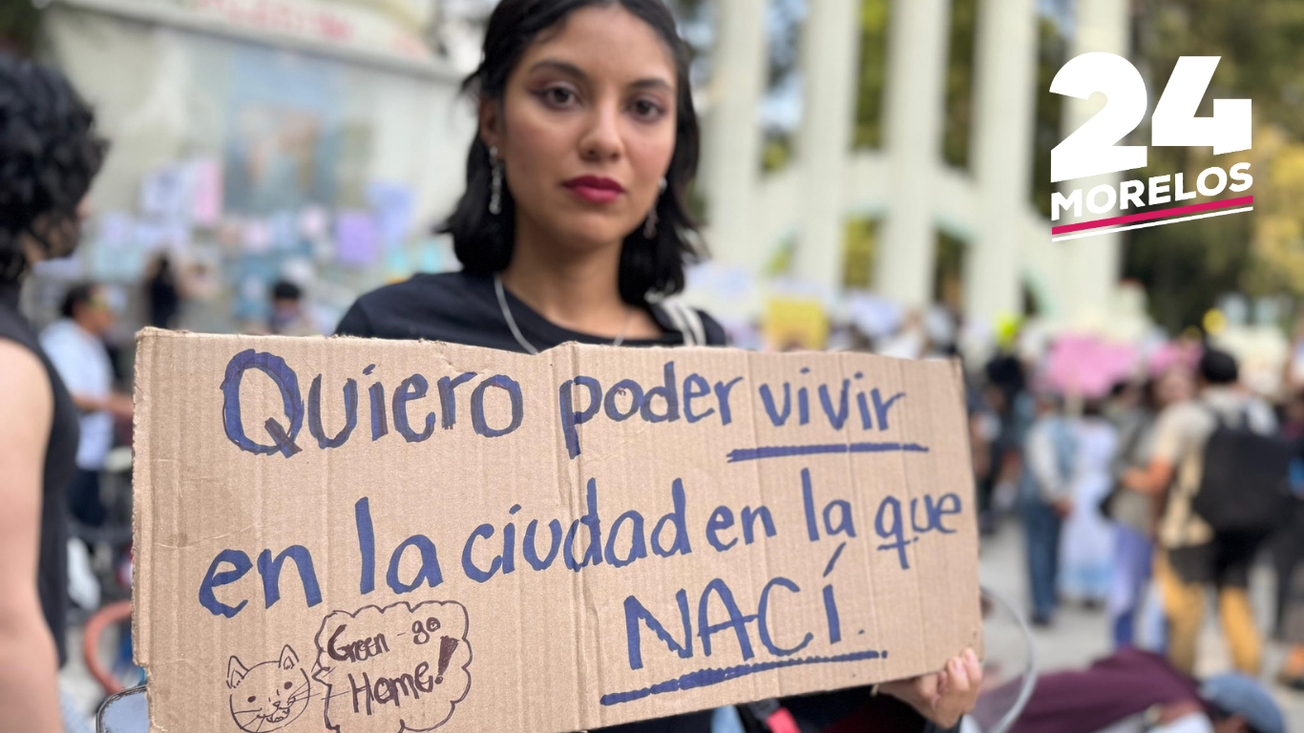 24
MORELOS
Quiero poder vivir
en la ciudad en la que
NACÍ.
Green-go
Home!